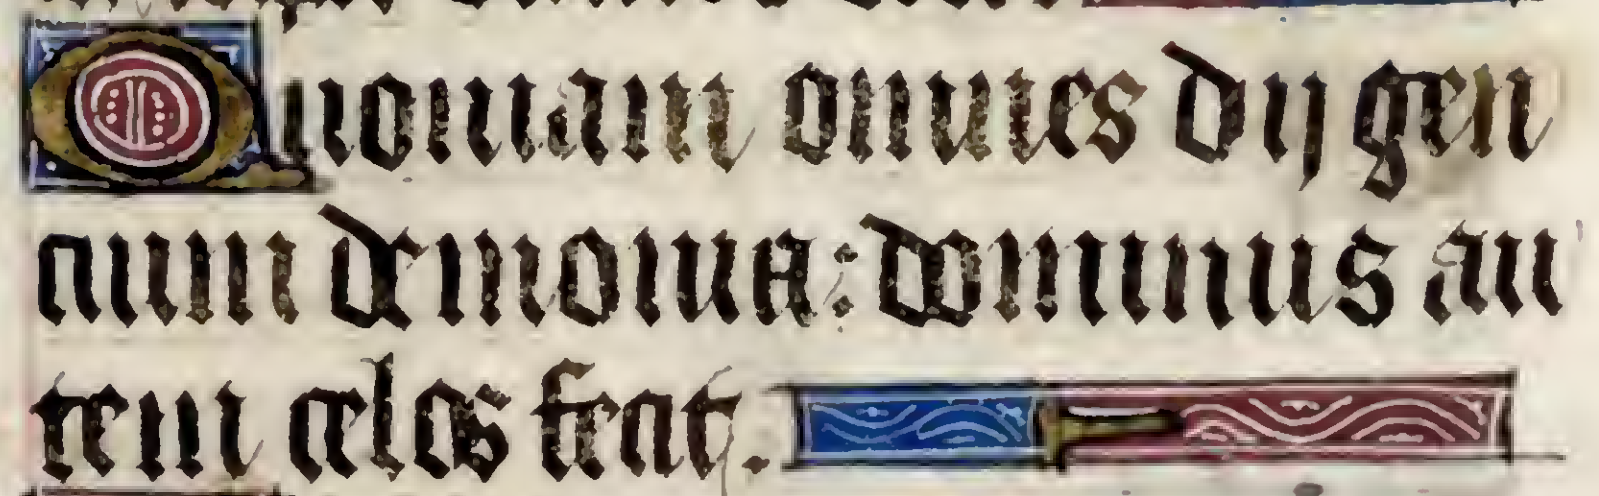 Quoniam omnes dij gen
cium demonia: dominus au
tem celos fecit.